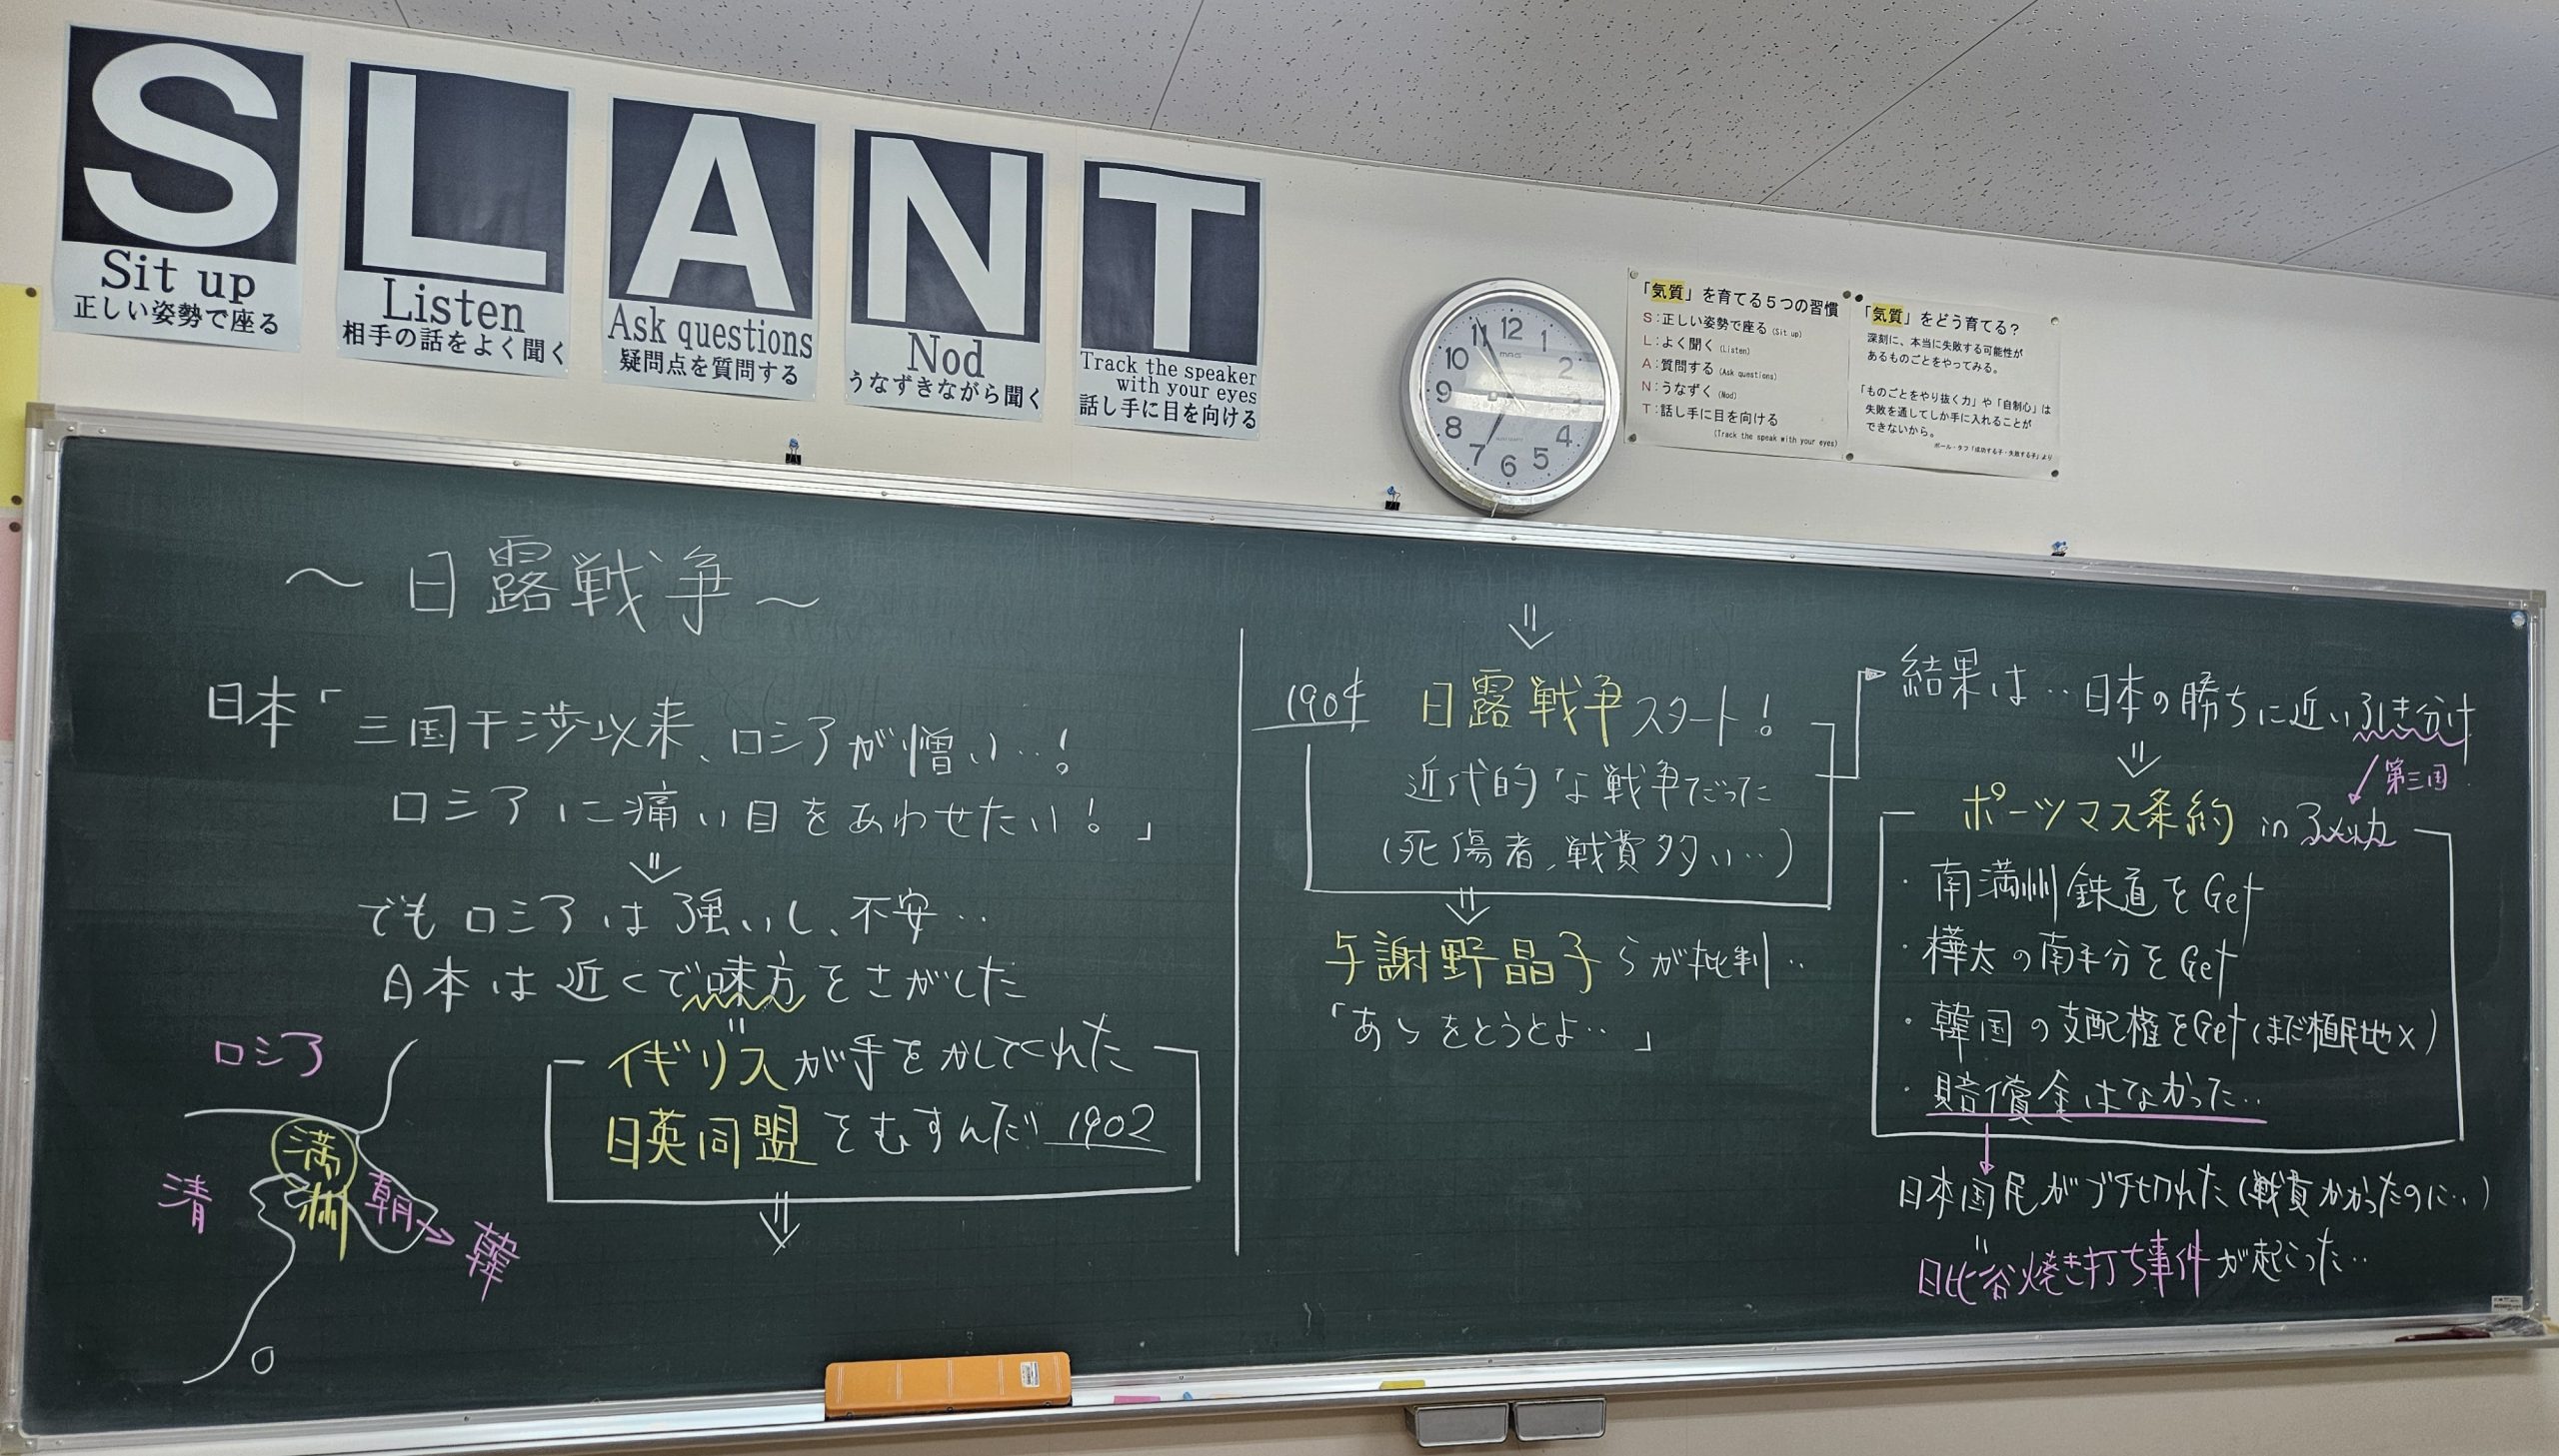 S
Sit up
正しい姿勢で座る
L
Listen
相手の話をよく聞く
A
Ask questions
疑問点を質問する
N
Nod
うなずきながら聞く
T
Track the speaker
with your eyes
話し手に目を向ける
12
1
2
3
4
5
6
7
8
9
10
11
「気質」を育てる5つの習慣
S:正しい姿勢で座る (Sit up)
L:よく聞く (Listen)
A:質問する (Ask questions)
N:うなずく (Nod)
T:話し手に目を向ける
(Track the speak with your eyes)
「気質」をどう育てる?
深刻に、本当に失敗する可能性が
あるものごとをやってみる。
「ものごとをやり抜く力」や「自制心」は
失敗を通してしか手に入れることが
できないから。
ポール・タフ「成功する子・失敗する子」より
～日露戦争～
日本「三国干渉以来、ロシアが憎い…!
ロシアに痛い目をあわせたい!」
⇓
でもロシアは強いし、不安…
日本は近くで味方をさがした
イギリスが手をかしてくれた
日英同盟をむすんだ! 1902
⇓
ロシア
満州
清
朝→韓
⇓
1904 日露戦争スタート!
近代的な戦争だった
(死傷者、戦費多い…)
⇓
与謝野晶子らが批判…
「あゝをとうとよ…」
結果は…日本の勝ちに近い引き分け
⇓
第三国
ポーツマス条約 in アメリカ
・南満州鉄道をGet
・樺太の南半分をGet
・韓国の支配権をGet(まだ植民地×)
・賠償金はなかった…
日本国民がブチ切れた(戦費かかったのに…)
日比谷焼き打ち事件が起こった…